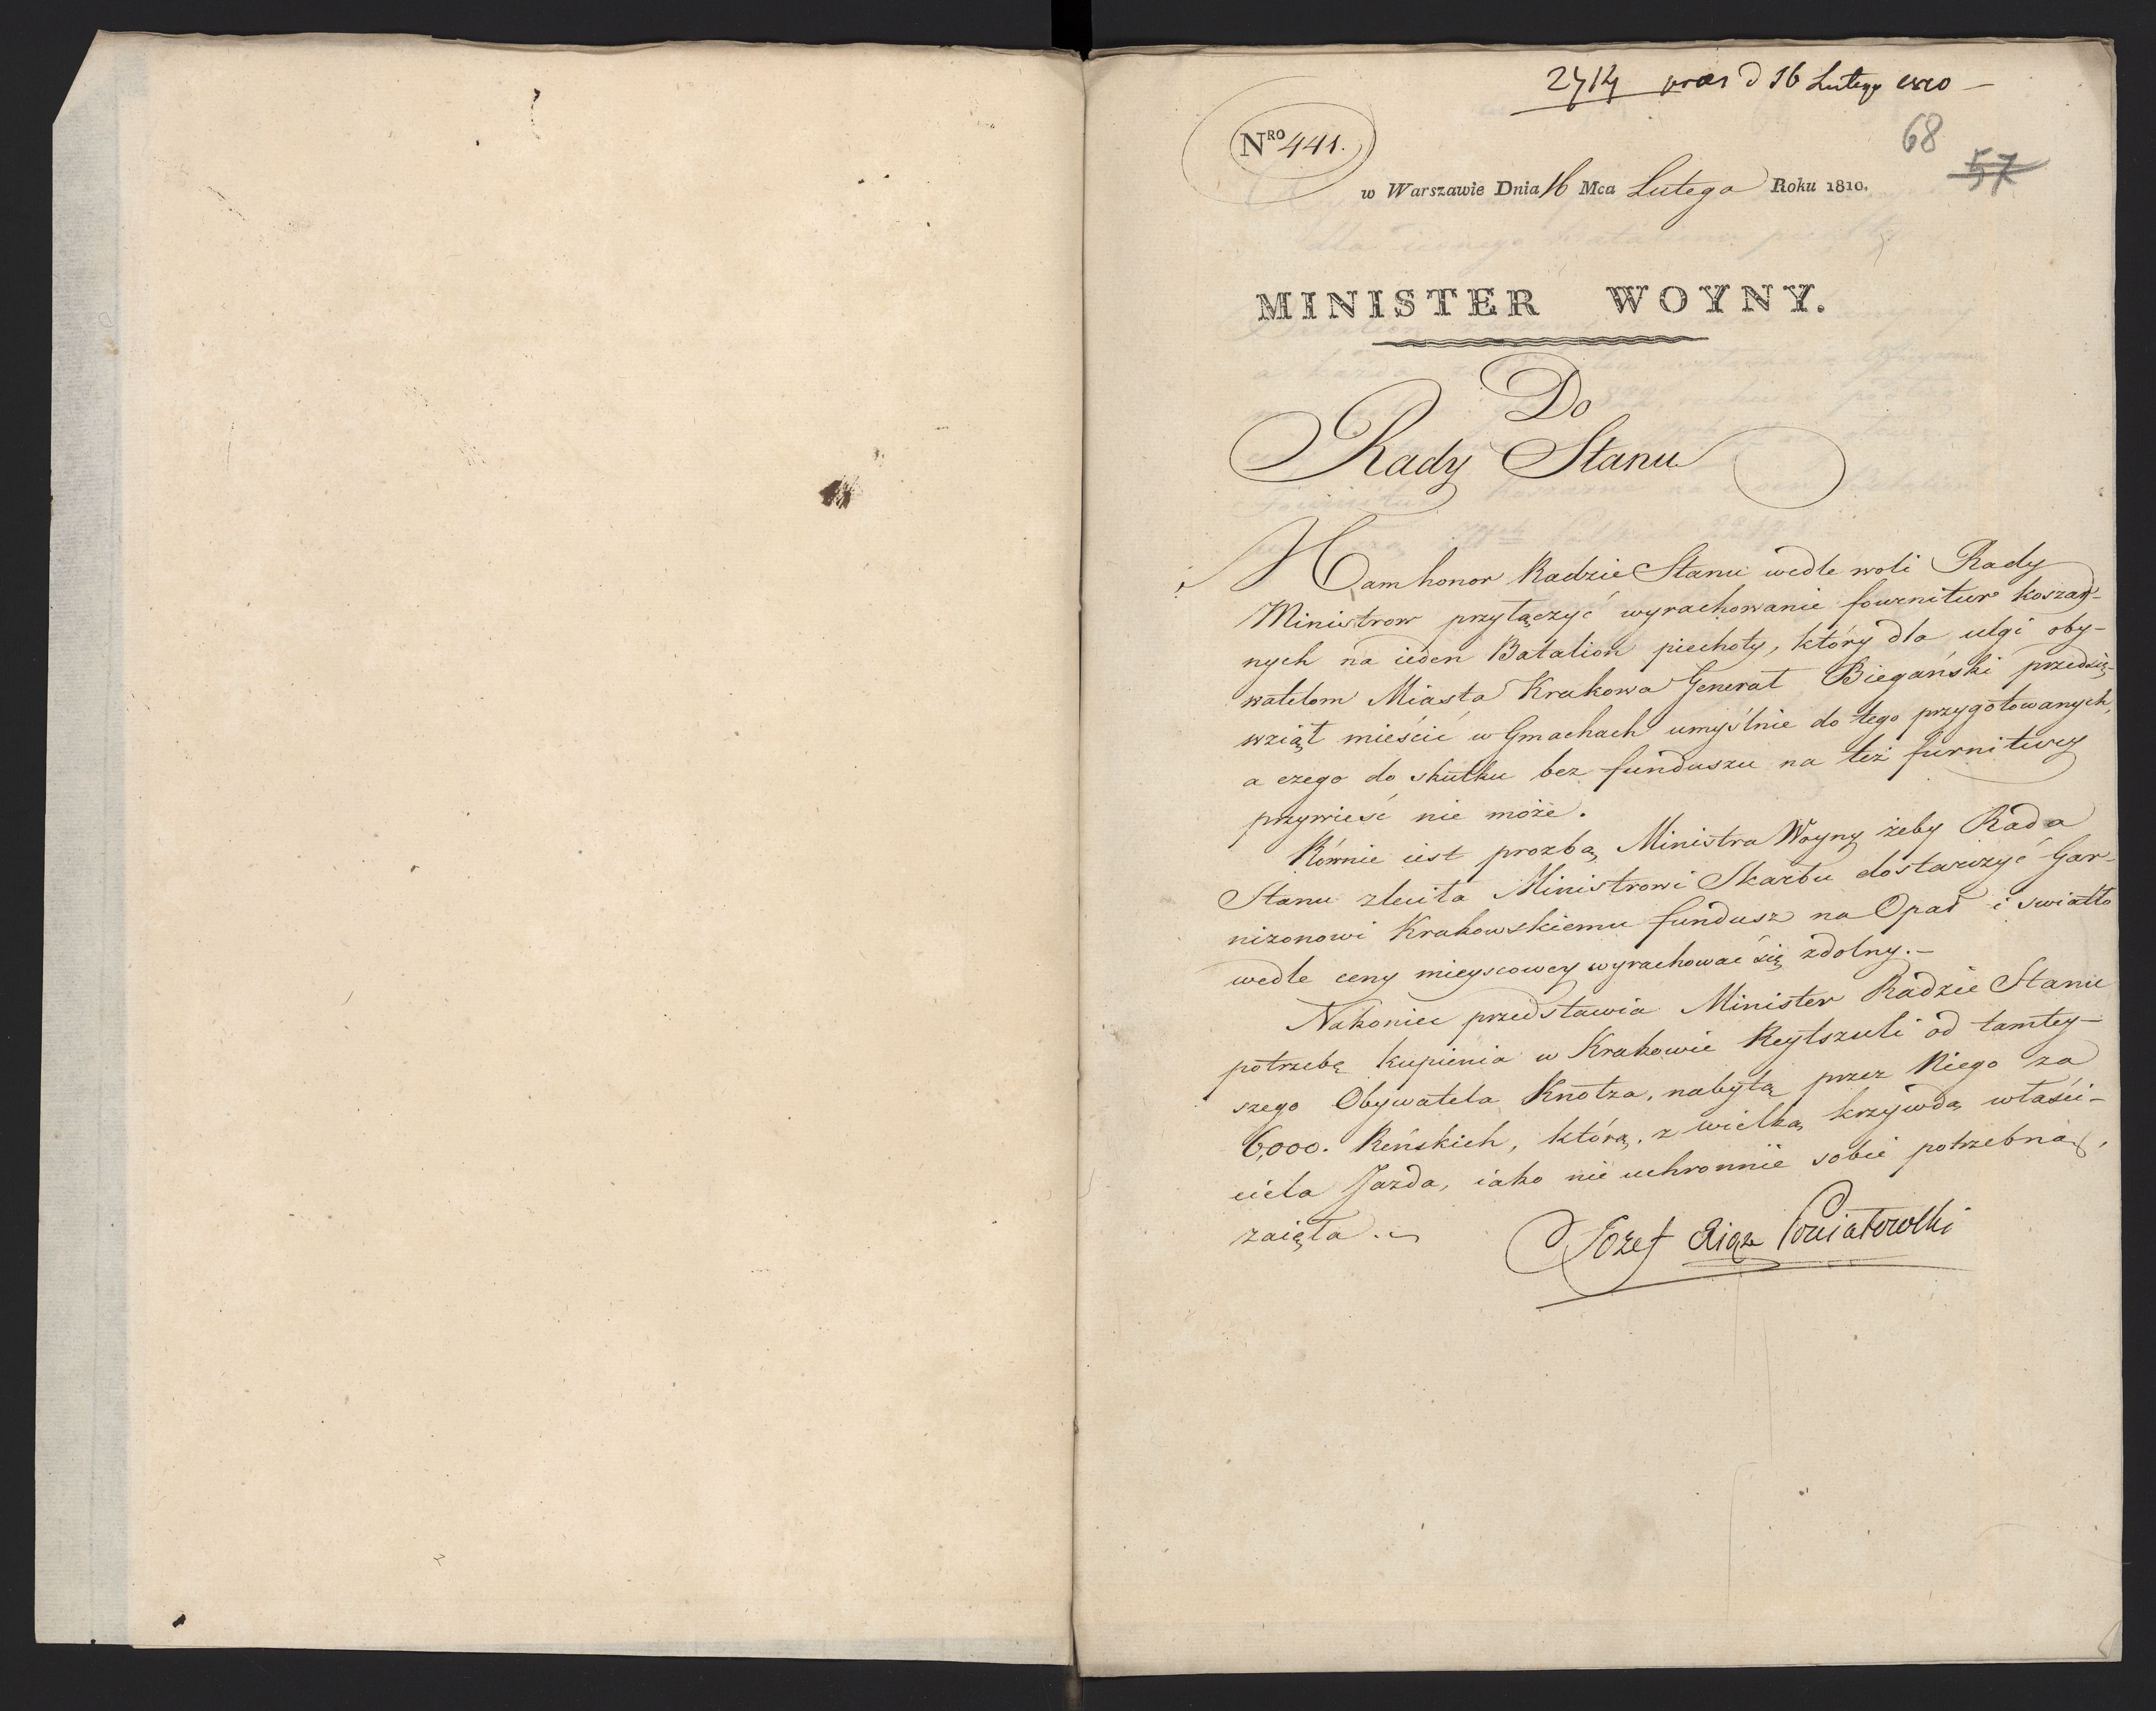 2714 præs d 16 Lutego 1810 —
68
57
NRO 441.
w Warszawie Dnia 16 Mca Lutego Roku 1810.
MINISTER WOYNY.
Do
Rady Stanu
Mam honor Radzie Stanu wedle woli Rady
Ministrow przyłączyć wyrachowanie fournitur koszar-
nych na ieden Batalion piechoty, który dla ulgi oby-
watelom Miasta Krakowa Generał Biegański przedsię-
wziął mieścić w Gmachach umyślnie do tego przygotowanych,
a czego do skutku bez funduszu na też furnitury
przywieść nie może.
Równie iest prozbą Ministra Woyny żeby Rada
Stanu zleciła Ministrowi Skarbu dostarczyć Gar-
nizonowi Krakowskiemu fundusz na Opał i swiatło
wedle ceny mieyscowey wyrachować się zdolny.—
Nakoniec przedstawia Minister Radzie Stanu
potrzebę kupienia w Krakowie Reytszuli od tamtey-
szego Obywatela Knotza, nabytą przez Niego za
6,000. Reńskich, którą, z wielką krzywdą właści-
ciela Jazda, iako nie uchronnie sobie potrzebną,
zaięła.
Józef Xiąże Poniatowski